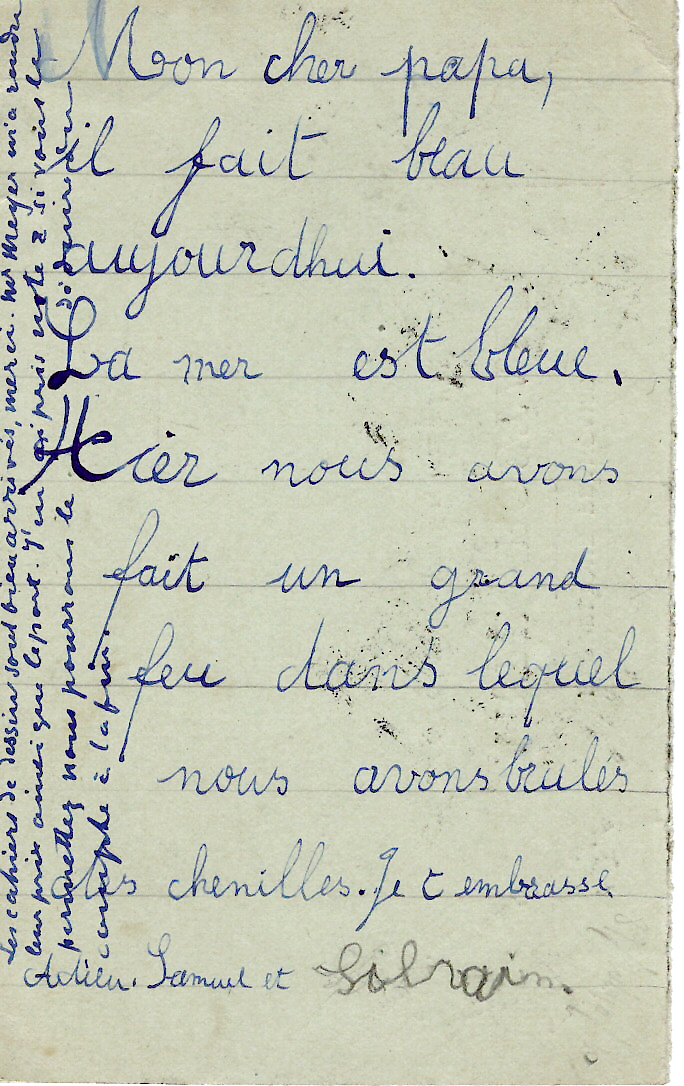 Mon cher papa,
il fait beau
aujourdhui.
La mer est bleue.
Hier nous avons
fait un grand
feu dans lequel
nous avons brulés
des chenilles. Je t embrasse
Adieu. Samuel et
Les cahiers de dessin sont bien arrivés, merci. Mr Meyer m'a rendu
leur prix ainsi que le port. J'en ai pris note & si vous le
permettez nous pourrons le
compte à la fin.